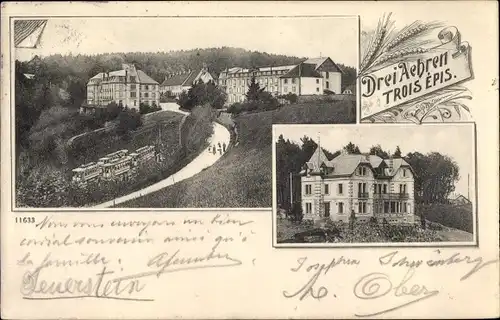 Drei Aehren
TROIS ÉPIS.
11633
Nous vous envoyons un bien
cordial souvenir ainsi qu'à
la famille.
Feuerstein
Josephine
M. Ober